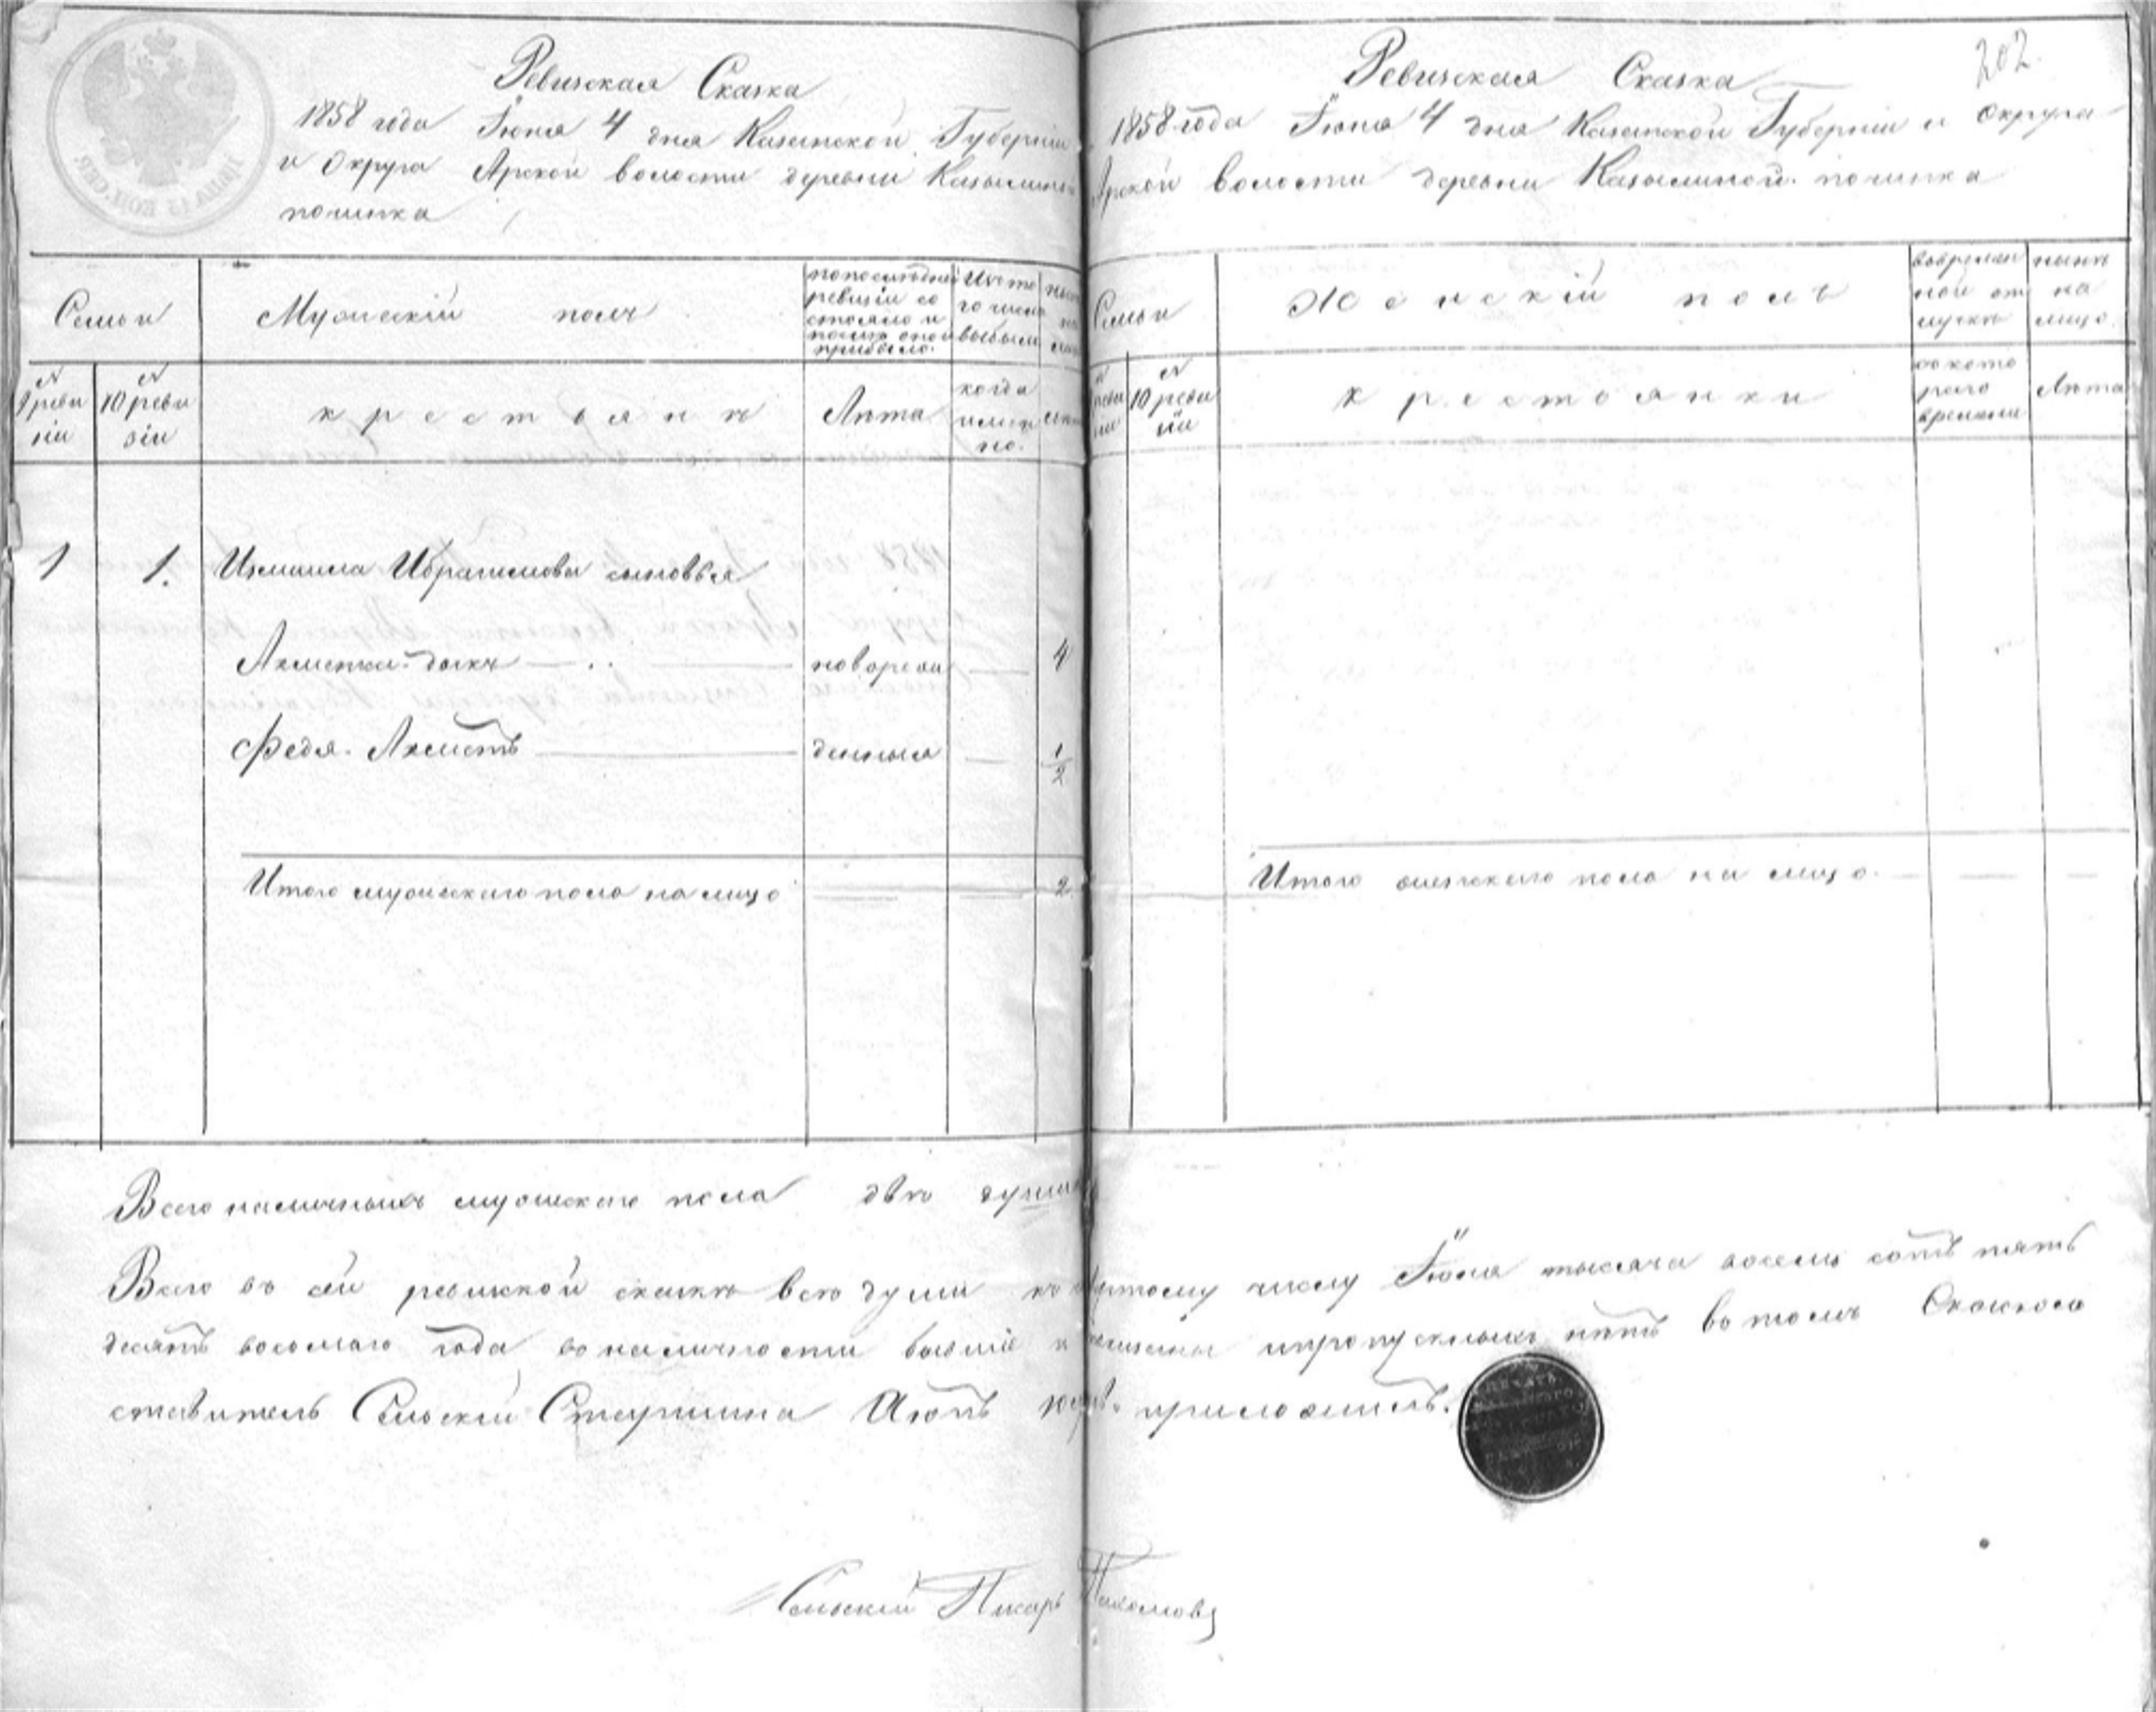 Ревизская Сказка
1858 года Іюня 4 дня Казанской Губерніи
и Округа Арской волости деревни Казылиной
починка
Семьи
Мужескій полъ
по последней
ревизіи со
стояло и
после оной
прибыло.
Изъ то
го числа
выбыло
9 реви
зіи
№
10 реви
зіи
крестьяне
Лета
когда
имен
но.
1 1. Измаила Ибрагимова сыновья
Ахметза- новорож 4
Федя. Ахметъ денныя 1/2
Итого мужескаго пола на лицо 2
202.
Ревизская Сказка
1858 года Іюня 4 дня Казанской Губерніи и Округа
Арской волости деревни Казылиной починка
Семьи
Женскій полъ
во времен
ной от
лучке
ныне
на
лицо.
№
10 реви
зіи
крестьянки
съ кото
раго
времени
Лета
Итого женскаго пола на лицо.
Всего наличныхъ мужескаго пола две души
Всего въ сей ревизской сказке всего души къ четвертому числу Іюня тысяча восемь сотъ пять
десятъ восьмаго года въ наличности бывшіе и прописныхъ нетъ въ томъ Сказкосо
ставитель Сельскій Старшина приложилъ.
Сельскій Писарь Пахомовъ